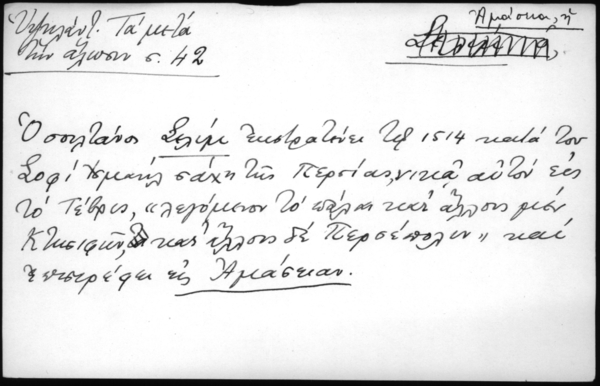 Ὑψηλάντ. Τὰ μετὰ
τὴν ἅλωσιν σ. 42
Ἀμάσεια, ἡ
Ὁ σουλτάνος Σελὶμ ἐκστρατεύει τῷ 1514 κατὰ τοῦ
Σοφὶ Ἰσμαὴλ σάχη τῆς Περσίας, νικᾷ αὐτὸν εἰς
τὸ Τέβρις, «λεγόμενον τὸ πάλαι κατ' ἄλλους μὲν
Κτησιφῶν, κατ' ἄλλους δὲ Περσέπολιν» καὶ
ἐπιστρέφει εἰς Ἀμάσειαν.